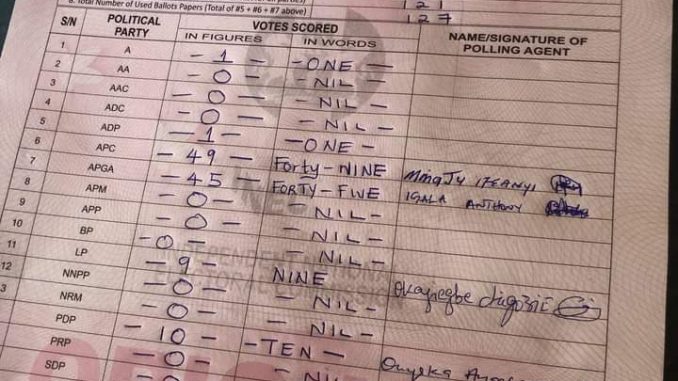 8. Total Number of Used Ballots Papers (Total of #5 + #6 + #7 above)
121
127
S/N POLITICAL PARTY VOTES SCORED NAME/SIGNATURE OF POLLING AGENT
IN FIGURES IN WORDS
1 A - 1 - - ONE -
2 AA - 0 - - NIL -
3 AAC - 0 - - NIL -
4 ADC - 0 - - NIL -
5 ADP - 1 - - ONE -
6 APC - 49 - Forty-NINE IFEANYI
7 APGA - 45 - FORTY-FIVE IGALA ANTHONY
8 APM - 0 - - NIL -
9 APP - 0 - - NIL -
10 BP - 0 - - NIL -
11 LP - 9 - NINE
12 NNPP - 0 - - NIL -
3 NRM - 0 - - NIL -
PDP - 10 - - TEN -
PRP - 0 - - NIL -
SDP